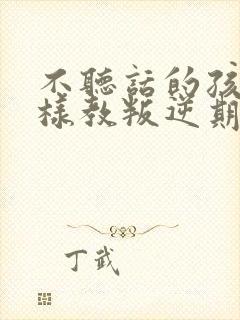 不聽話的孩
樣教叛逆期
丁武